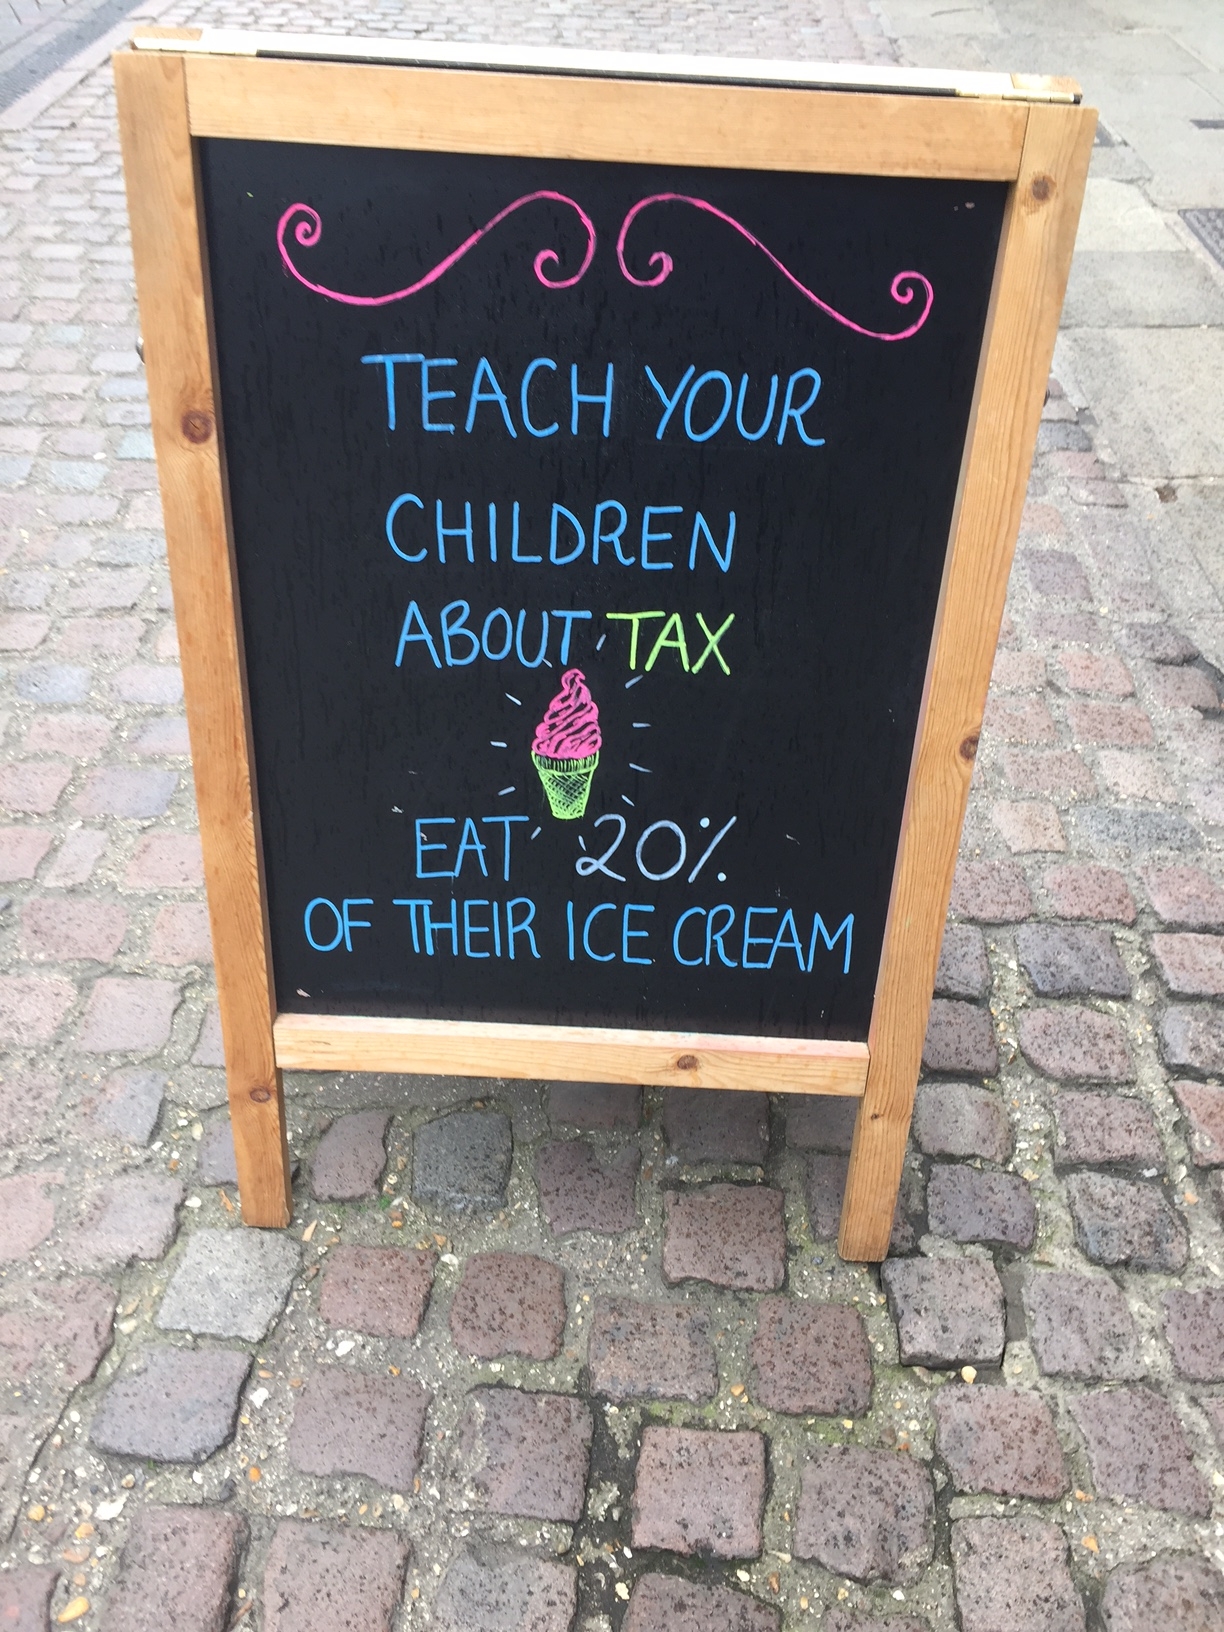 TEACH YOUR
CHILDREN
ABOUT TAX
EAT 20%
OF THEIR ICE CREAM